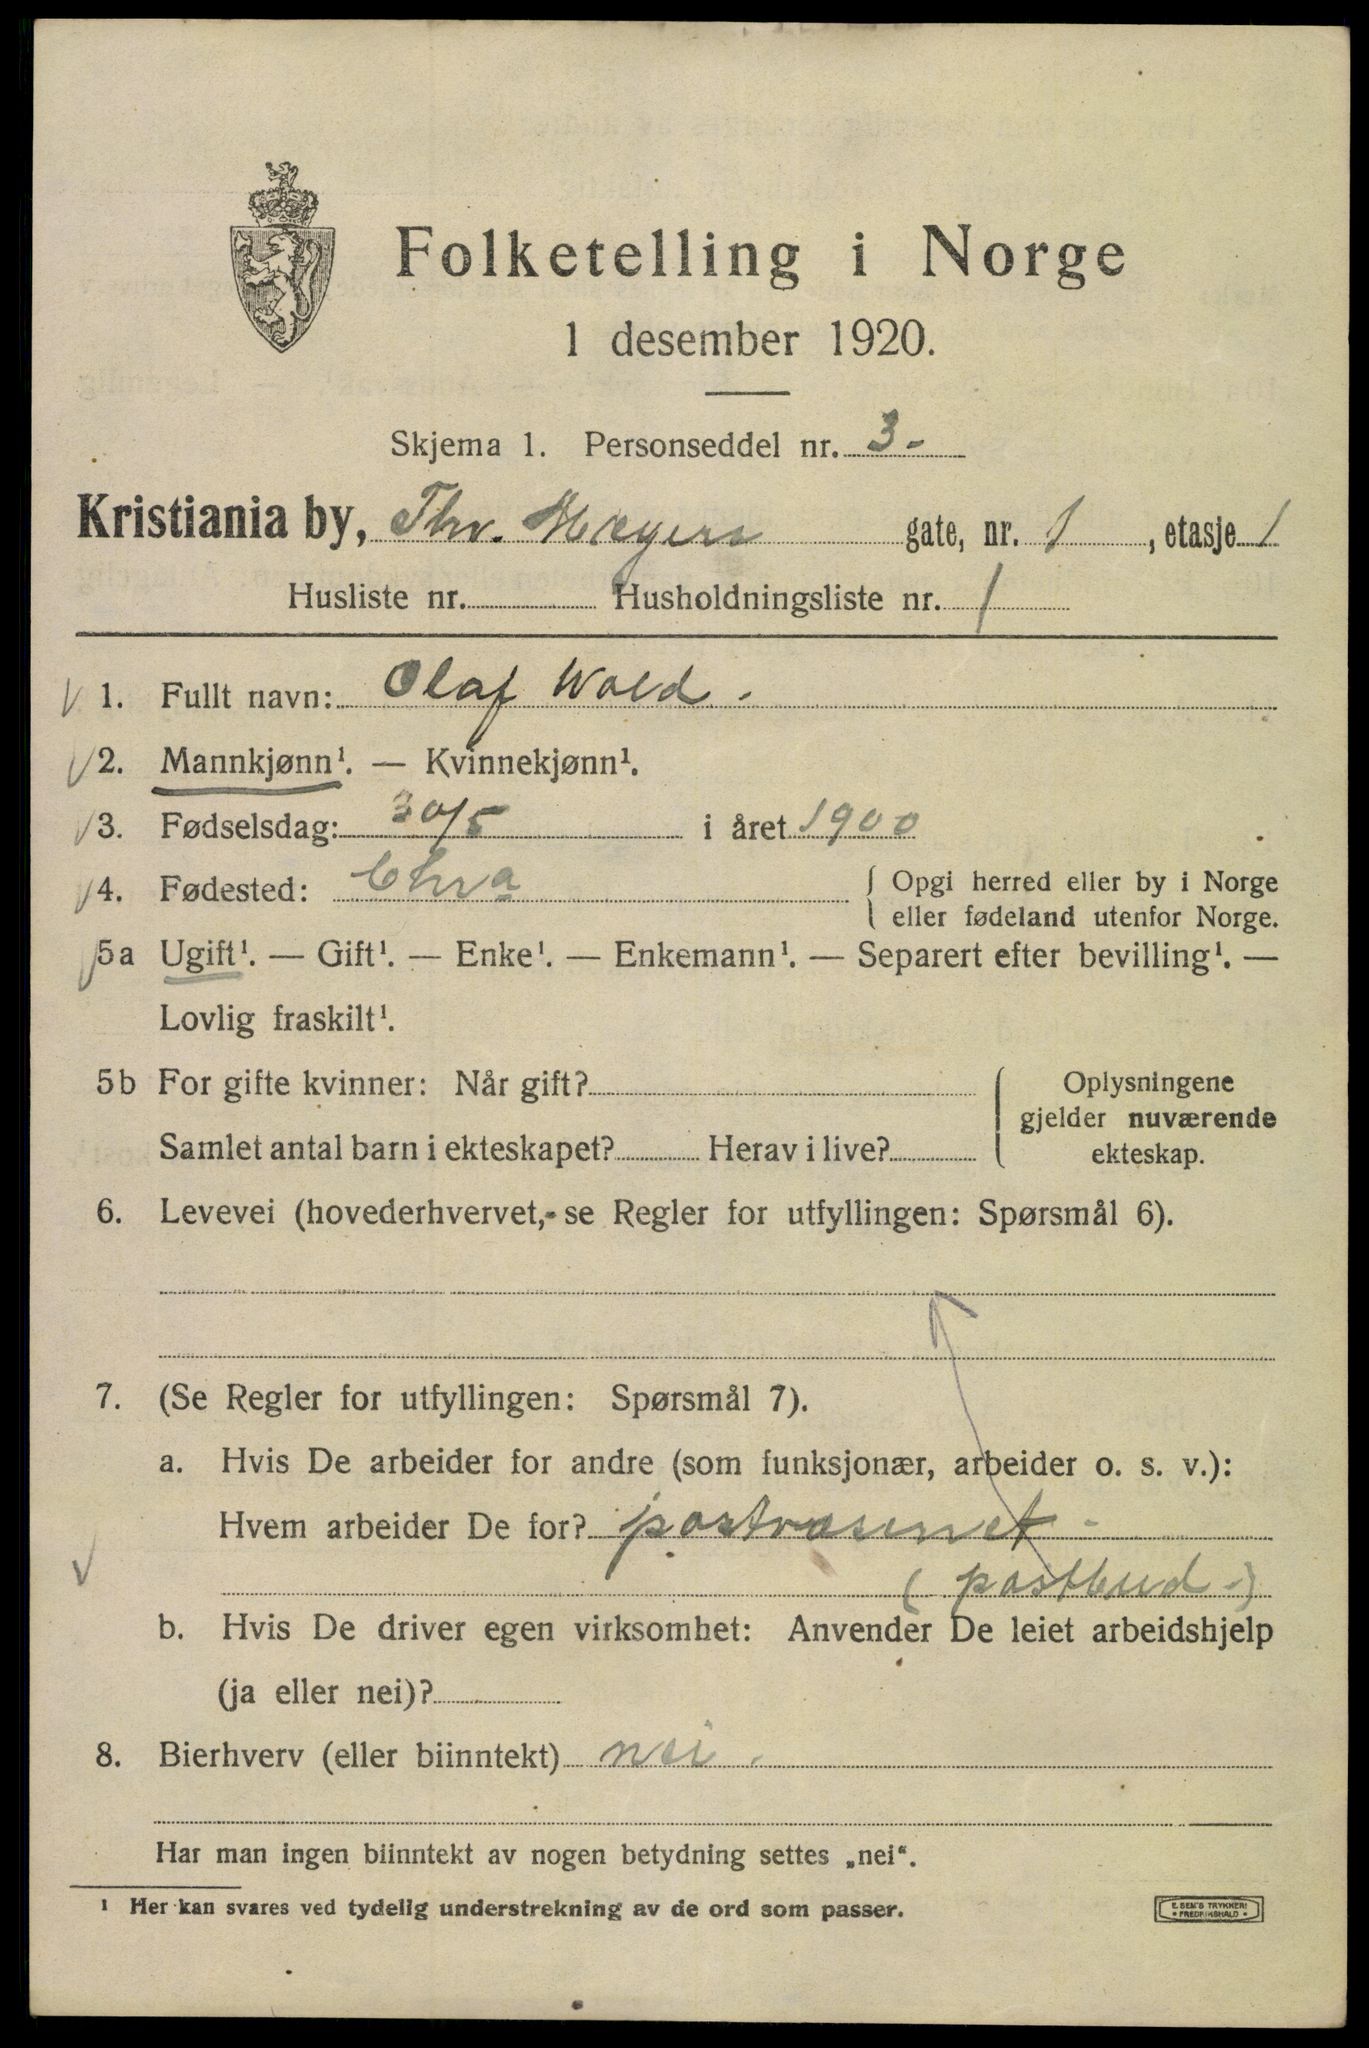 Folketelling i Norge
1 desember 1920.
Skjema 1. Personseddel nr. 3-
Kristiania by, Thv. Meyers gate, nr. 1, etasje 1
Husliste nr. Husholdningsliste nr. 1
1. Fullt navn: Olaf Wold.
2. Mannkjønn¹. — Kvinnekjønn¹.
3. Fødselsdag: 30/5 i året 1900
4. Fødested: Chra { Opgi herred eller by i Norge
eller fødeland utenfor Norge.
5a Ugift¹. — Gift¹. — Enke¹. — Enkemann¹. — Separert efter bevilling¹. —
Lovlig fraskilt¹.
5b For gifte kvinner: Når gift? Oplysningene
gjelder nuværende
Samlet antal barn i ekteskapet? Herav i live? ekteskap.
6. Levevei (hovederhvervet, se Regler for utfyllingen: Spørsmål 6).
7. (Se Regler for utfyllingen: Spørsmål 7).
a. Hvis De arbeider for andre (som funksjonær, arbeider o. s. v.):
Hvem arbeider De for? postvæsenet -
(postbud -)
b. Hvis De driver egen virksomhet: Anvender De leiet arbeidshjelp
(ja eller nei)?
8. Bierhverv (eller biinntekt) nei.
Har man ingen biinntekt av nogen betydning settes „nei“.
¹ Her kan svares ved tydelig understrekning av de ord som passer.
E. SEM'S TRYKKERI
FREDRIKSHALD